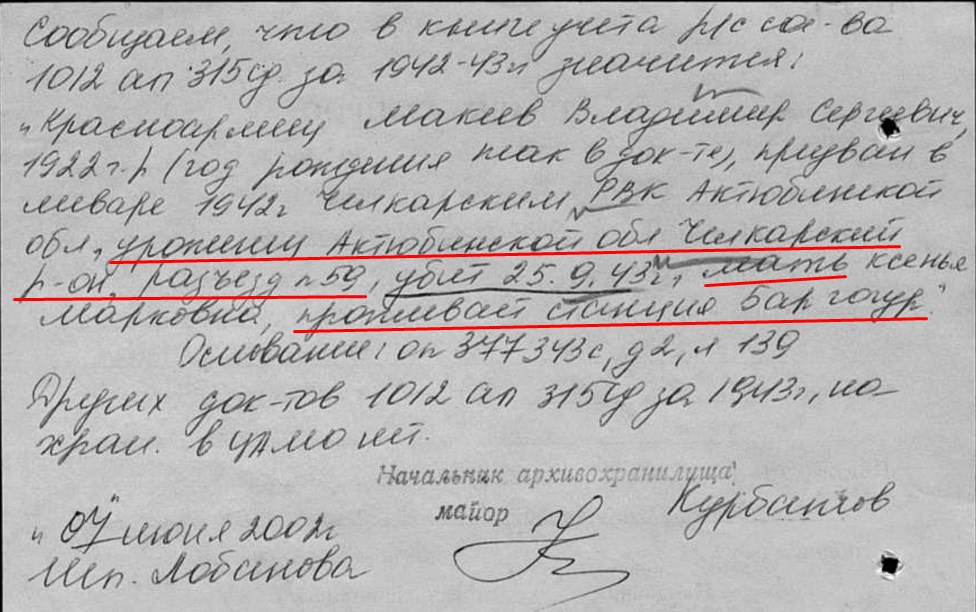 Сообщаем, что в книге учета р/с сос-ва
1012 ап 315сд за 1942-43г значится:
"Красноармеец Макеев Владимир Сергеевич,
1922 г.р (год рождения так в док-те), призван в
январе 1942г Челкарским РВК Актюбинской
обл., уроженец Актюбинской обл Челкарский
р-он, разъезд №59, убит 25.9.43г, мать Ксенья
Марковна, проживает станция Бар гогур."
Основание: оп 377343с, д 2, л 139
Других док-тов 1012 ап 315сд за 1943г, на
хран. в ЦАМО нет.
Начальник архивохранилища
майор Курбанов
"07" июня 2002г
Исп. Лобанова